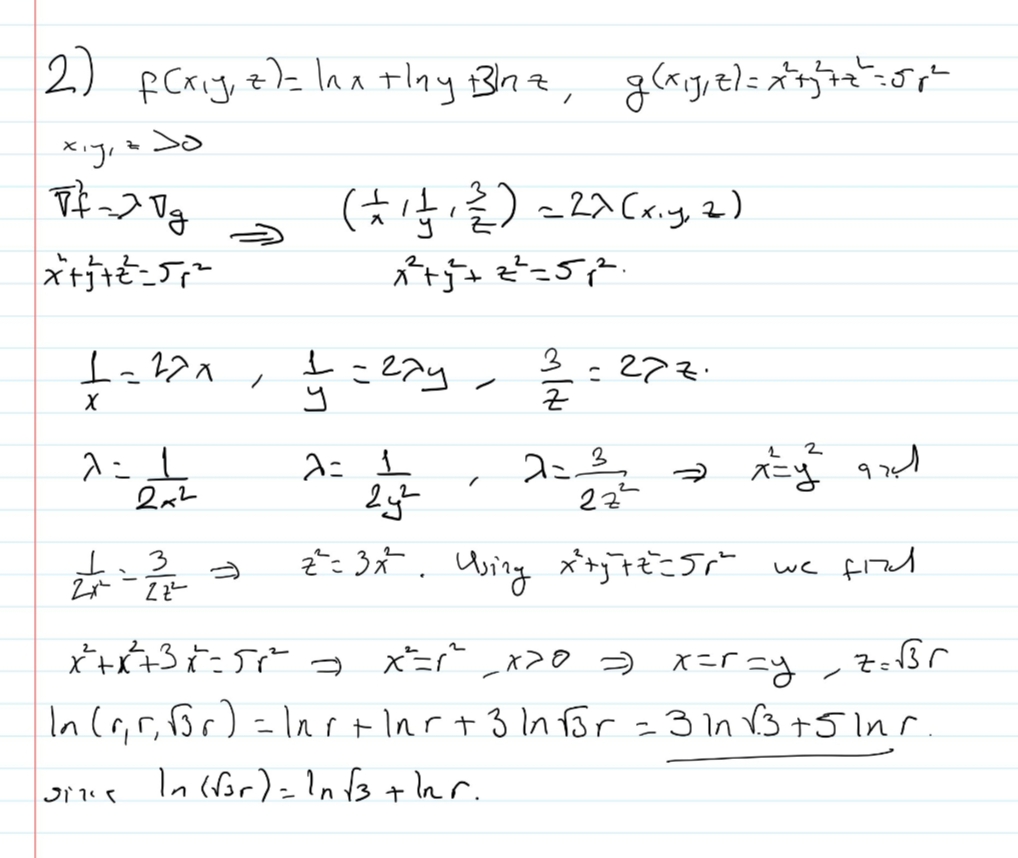 2) f(x,y,z)= ln x + ln y + 3ln z, g(x,y,z)= x²+y²+z²=5r²
x,y,z >0
∇f=λ∇g ⇒ (1/x, 1/y, 3/z) = 2λ(x,y,z)
x²+y²+z²=5r² x²+y²+z²=5r².
1/x = 2λx, 1/y = 2λy, 3/z = 2λz.
λ= 1/2x² λ= 1/2y², λ= 3/2z² ⇒ x²=y² and
1/2x² = 3/2z² ⇒ z²=3x². Using x²+y²+z²=5r² we find
x²+x²+3x²=5r² ⇒ x²=r², x>0 ⇒ x=r=y, z=√3 r
ln(r,r,√3r) = ln r + ln r + 3 ln √3r = 3 ln √3 + 5 ln r.
since ln(√3r) = ln √3 + ln r.